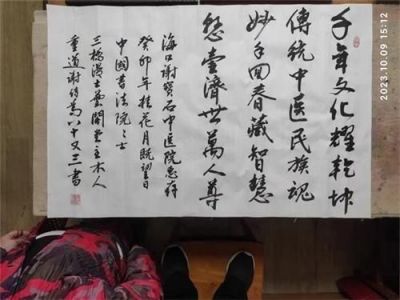 千年文化耀乾坤
傳統中医民族魂
妙手回春藏智慧
懸壺濟世萬人尊
海口謝寶石中医院惠存
癸卯年桂花月既望日
中國書法院院士
三橋漫士藝閣堂主木人
重道謝
八十又三書
2023.10.09 15:12